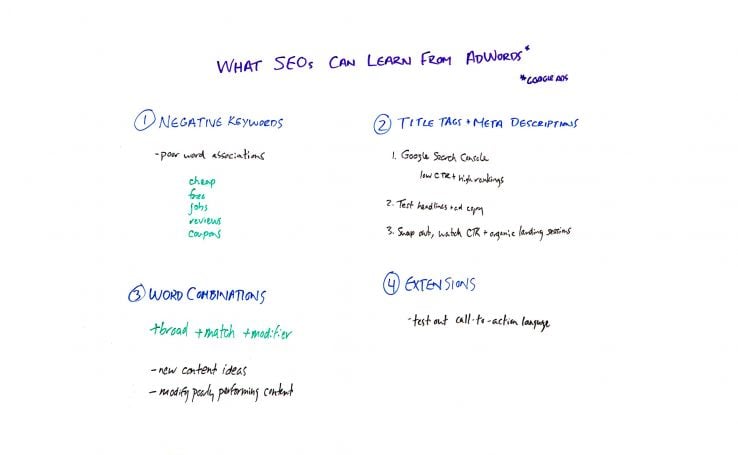 WHAT SEOs CAN LEARN FROM ADWORDS*
*GOOGLE ADS
1 NEGATIVE KEYWORDS
- poor word associations
cheap
free
jobs
reviews
coupons
2 TITLE TAGS + META DESCRIPTIONS
1. Google Search Console
low CTR + high rankings
2. Test headlines + ad copy
3. Swap out, watch CTR + organic landing sessions
3 WORD COMBINATIONS
+broad +match +modifier
- new content ideas
- modify poorly performing content
4 EXTENSIONS
- test out call-to-action language